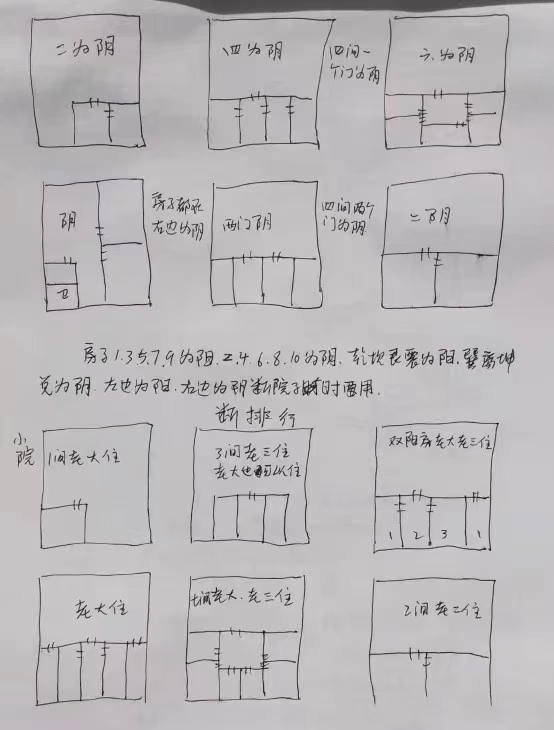 二为阴
四为阴
四间一
个门为阴
六为阴
阴
卫
房子都在
左边为阴
两门阴
四间两个
门为阴
二为阴
房子1.3.5.7.9为阳.2.4.6.8.10为阴.乾坎艮震为阳.巽离坤
兑为阴.左边为阳.右边为阴断院子时要用.
断排行
小院
1间老大住
3间老三住
老大也可以住
双阳房老大老三住
1 2 3 1
老大住
七间老大.老三住
2间老二住